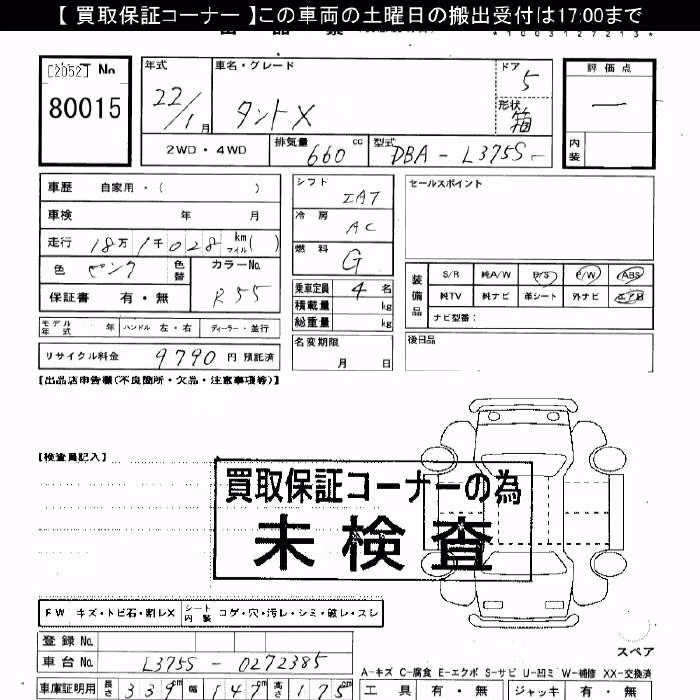 【 買取保証コーナー 】この車両の土曜日の搬出受付は17:00まで
*1003127213*
[2052] No
80015
年式 22/1月
車名・グレード タントX
ドア 5
形状 箱
評価点 —
内装
2WD・4WD
排気量 660 cc
型式 DBA-L375S-
車歴 自家用・( )
車検 年 月
走行 18万1千028 km マイル ( )
色 ピンク 色替
カラーNo. R55
保証書 有・無
モデル年式 年 ハンドル 左・右 ディーラー・並行
リサイクル料金 9790 円 預託済
シフト IAT
冷房 AC
燃料 G
乗車定員 4 名
積載量 kg
総重量 kg
名変期限 月 日
セールスポイント
装備品
S/R 純A/W P/S P/W ABS
純TV 純ナビ 革シート 外ナビ エアB
ナビ型番:
後日品
【出品店申告欄(不良箇所・欠品・注意事項等)】
【検査員記入】
買取保証コーナーの為
未検査
FW キズ・トビ石・割レX シート内装 コゲ・穴・汚レ・シミ・破レ・スレ
登録 No.
車台 No. L375S-0272385
車庫証明用 長さ 339cm 幅 147cm 高さ 175cm
スペア
A-キズ C-腐食 E-エクボ S-サビ U-凹ミ W-補修 XX-交換済
工具 有・無 ジャッキ 有・無